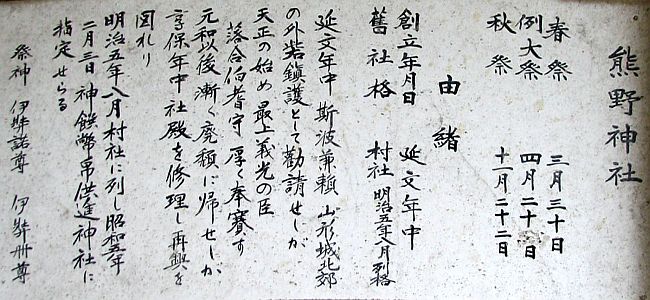 熊野神社
春祭 三月三十日
例大祭 四月二十日
秋祭 十一月二十二日
由緒
創立年月日 延文年中
舊社格 村社 明治五年八月列格
延文年中 斯波兼頼 山形城北郊
の外砦鎮護として勧請せしが
天正の始め 最上義光の臣
落合伯耆守 厚く奉賽す
元和以後漸く廃頽に帰せしが
享保年中社殿を修理し再興を
図れり
明治五年八月村社に列し昭和五年
二月三日神饌幣帛供進神社に
指定せらる
祭神 伊弉諾尊 伊弉册尊